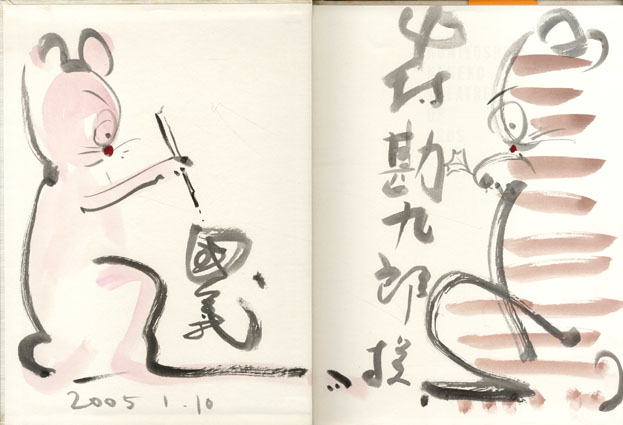 國義
2005 1.10
中村勘九郎様